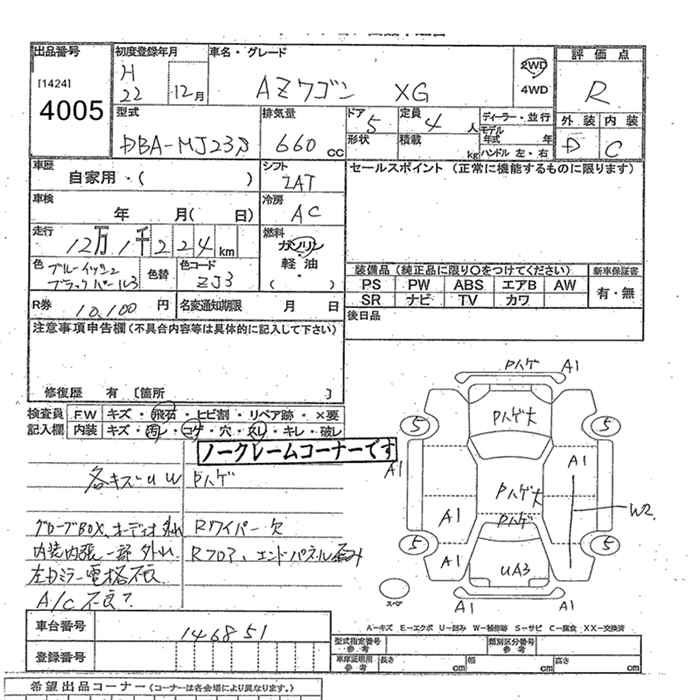 出品番号
[1424]
4005
初度登録年月
H 22 12月
車名・グレード
AZワゴン XG
2WD
4WD
評価点
R
外装 内装
D C
型式
DBA-MJ23S
排気量
660 cc
ドア 5
形状
定員 4 人
積載 kg
ディーラー・並行
モデル年式 年
ハンドル 左・右
車歴
自家用・( )
シフト
IAT
セールスポイント(正常に機能するものに限ります)
車検
年 月( 日)
冷房
AC
走行
12万1千224km
燃料
ガソリン
軽油
( )
色 ブルーイッシュブラックパール3
色替
色コード
ZJ3
装備品(純正品に限り○をつけてください)
新車保証書
PS PW ABS エアB AW
SR ナビ TV カワ
有・無
R券 10,100円
名変通知期限 月 日
後日品
注意事項申告欄(不具合内容等は具体的に記入して下さい)
修復歴 有 〔箇所 〕
検査員記入欄
F.W キズ・飛石・ヒビ割・リペア跡・×要
内装 キズ・汚レ・コゲ・穴・スレ・キレ・破レ
ノークレームコーナーです
各キズ・U W Pハゲ
グローブBOX、オーディオ外れ Rワイパー欠
内装内張一部外れ Rフロア、エンドパネル歪み
左ドアミラー電格不良
A/C不良?
Pハゲ A1
5 Pハゲ大 5
A1 A1
Pハゲ大
A1 Pハゲ W2
5 A1 5
UA3
スペア
A1 A1
A−キズ E−エクボ U−凹み W−補修跡 S−サビ C−腐食 XX−交換済
車台番号
146851
登録番号
型式指定番号 参考
類別区分番号 参考
車庫証明用 参考
長さ cm 幅 cm 高さ cm
希望出品コーナー(コーナーは各会場により異なります。)